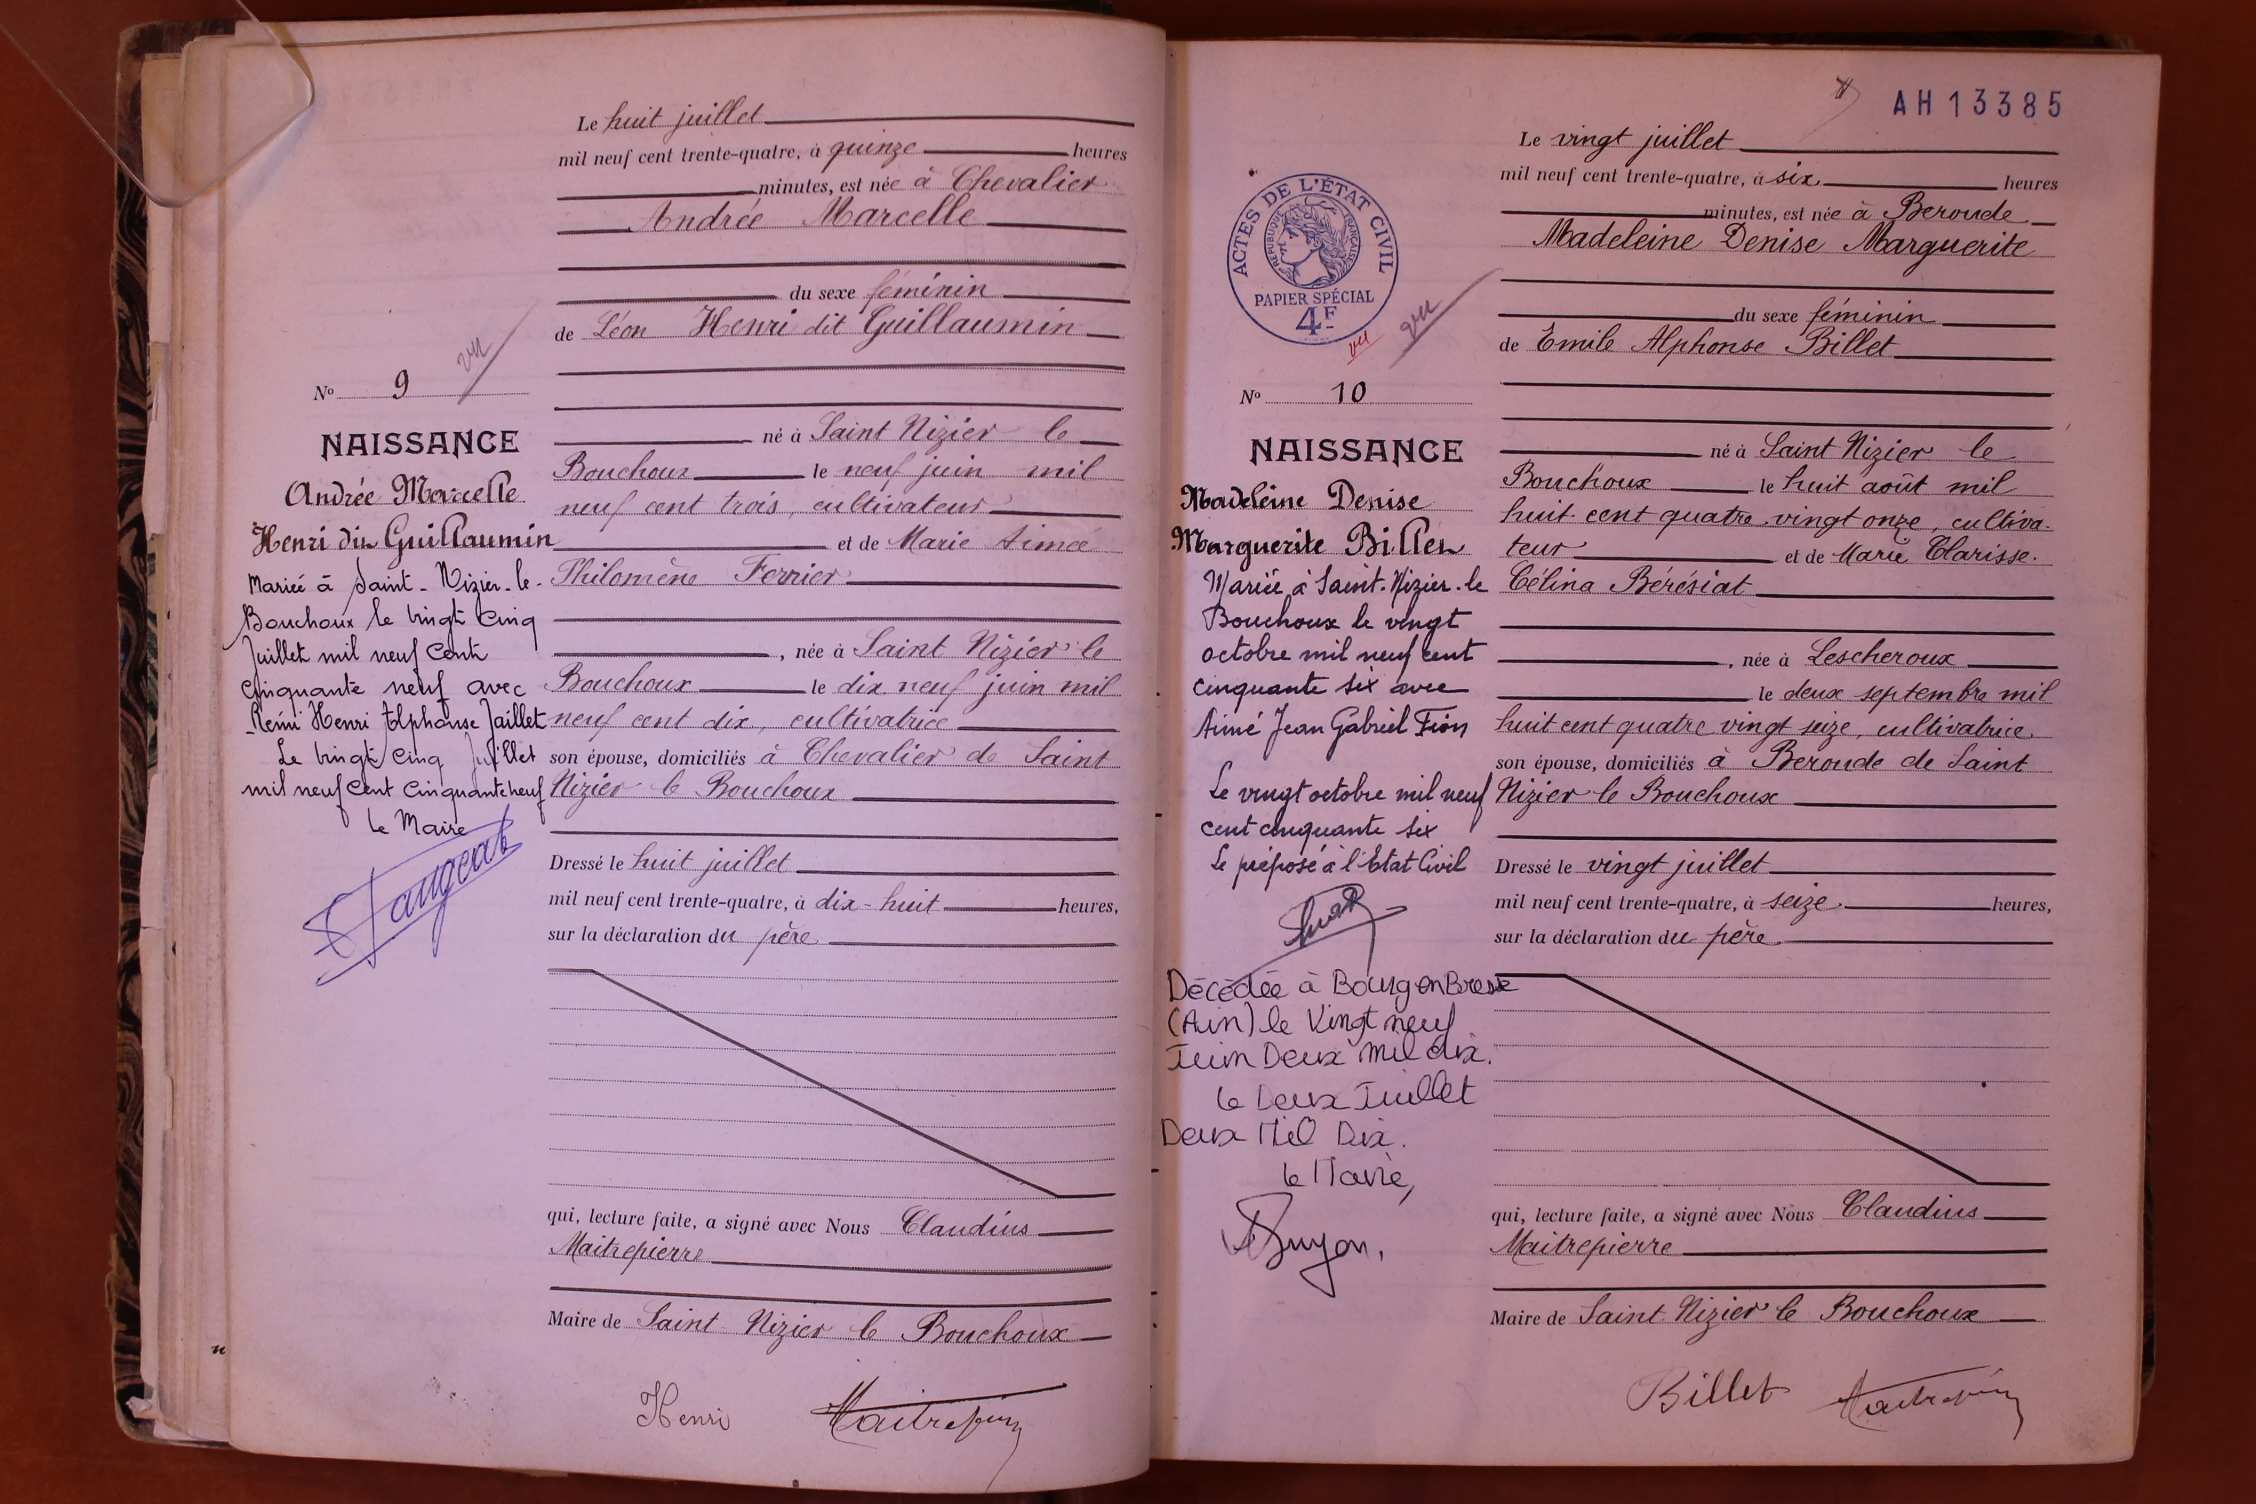 Le huit juillet
mil neuf cent trente-quatre, à quinze heures
minutes, est née à Chevalier
Andrée Marcelle
du sexe féminin
de Léon Henri dit Guillaumin
né à Saint Nizier le
Bouchoux le neuf juin mil
neuf cent trois, cultivateur
et de Marie Aimée
Philomène Ferrier
, née à Saint Nizier le
Bouchoux le dix neuf juin mil
neuf cent dix, cultivatrice
son épouse, domiciliés à Chevalier de Saint
Nizier le Bouchoux
Dressé le huit juillet
mil neuf cent trente-quatre, à dix-huit heures,
sur la déclaration du père
qui, lecture faite, a signé avec Nous Claudius
Maitrepierre
Maire de Saint Nizier le Bouchoux
Henri Maitrepierre
vu
No 9
NAISSANCE
Andrée Marcelle
Henri dit Guillaumin
Mariée à Saint-Nizier-le-
Bouchoux le vingt cinq
Juillet mil neuf cent
cinquante neuf avec
Rémi Henri Alphonse Jaillet
Le vingt cinq Juillet
mil neuf cent cinquante neuf
Le Maire
AH 13385
ACTES DE L'ÉTAT CIVIL
RÉPUBLIQUE FRANÇAISE
PAPIER SPÉCIAL
4F
vu
vu
No 10
NAISSANCE
Madeleine Denise
Marguerite Billet
Mariée à Saint-Nizier-le
Bouchoux le vingt
octobre mil neuf cent
cinquante six avec
Aimé Jean Gabriel Fion
Le vingt octobre mil neuf
cent cinquante six
Le préposé à l'Etat Civil
Décédée à Bourg en Bresse
(Ain) le Vingt neuf
Juin Deux mil dix.
Le Deux Juillet
Deux Mil Dix.
Le Maire,
Le vingt juillet
mil neuf cent trente-quatre, à six heures
minutes, est née à Beroude
Madeleine Denise Marguerite
du sexe féminin
de Emile Alphonse Billet
né à Saint Nizier le
Bouchoux le huit août mil
huit cent quatre vingt onze, cultiva-
teur et de Marie Clarisse
Célina Bérésiat
, née à Lescheroux
le deux septembre mil
huit cent quatre vingt seize, cultivatrice
son épouse, domiciliés à Beroude de Saint
Nizier le Bouchoux
Dressé le vingt juillet
mil neuf cent trente-quatre, à seize heures,
sur la déclaration du père
qui, lecture faite, a signé avec Nous Claudius
Maitrepierre
Maire de Saint Nizier le Bouchoux
Billet Maitrepierre